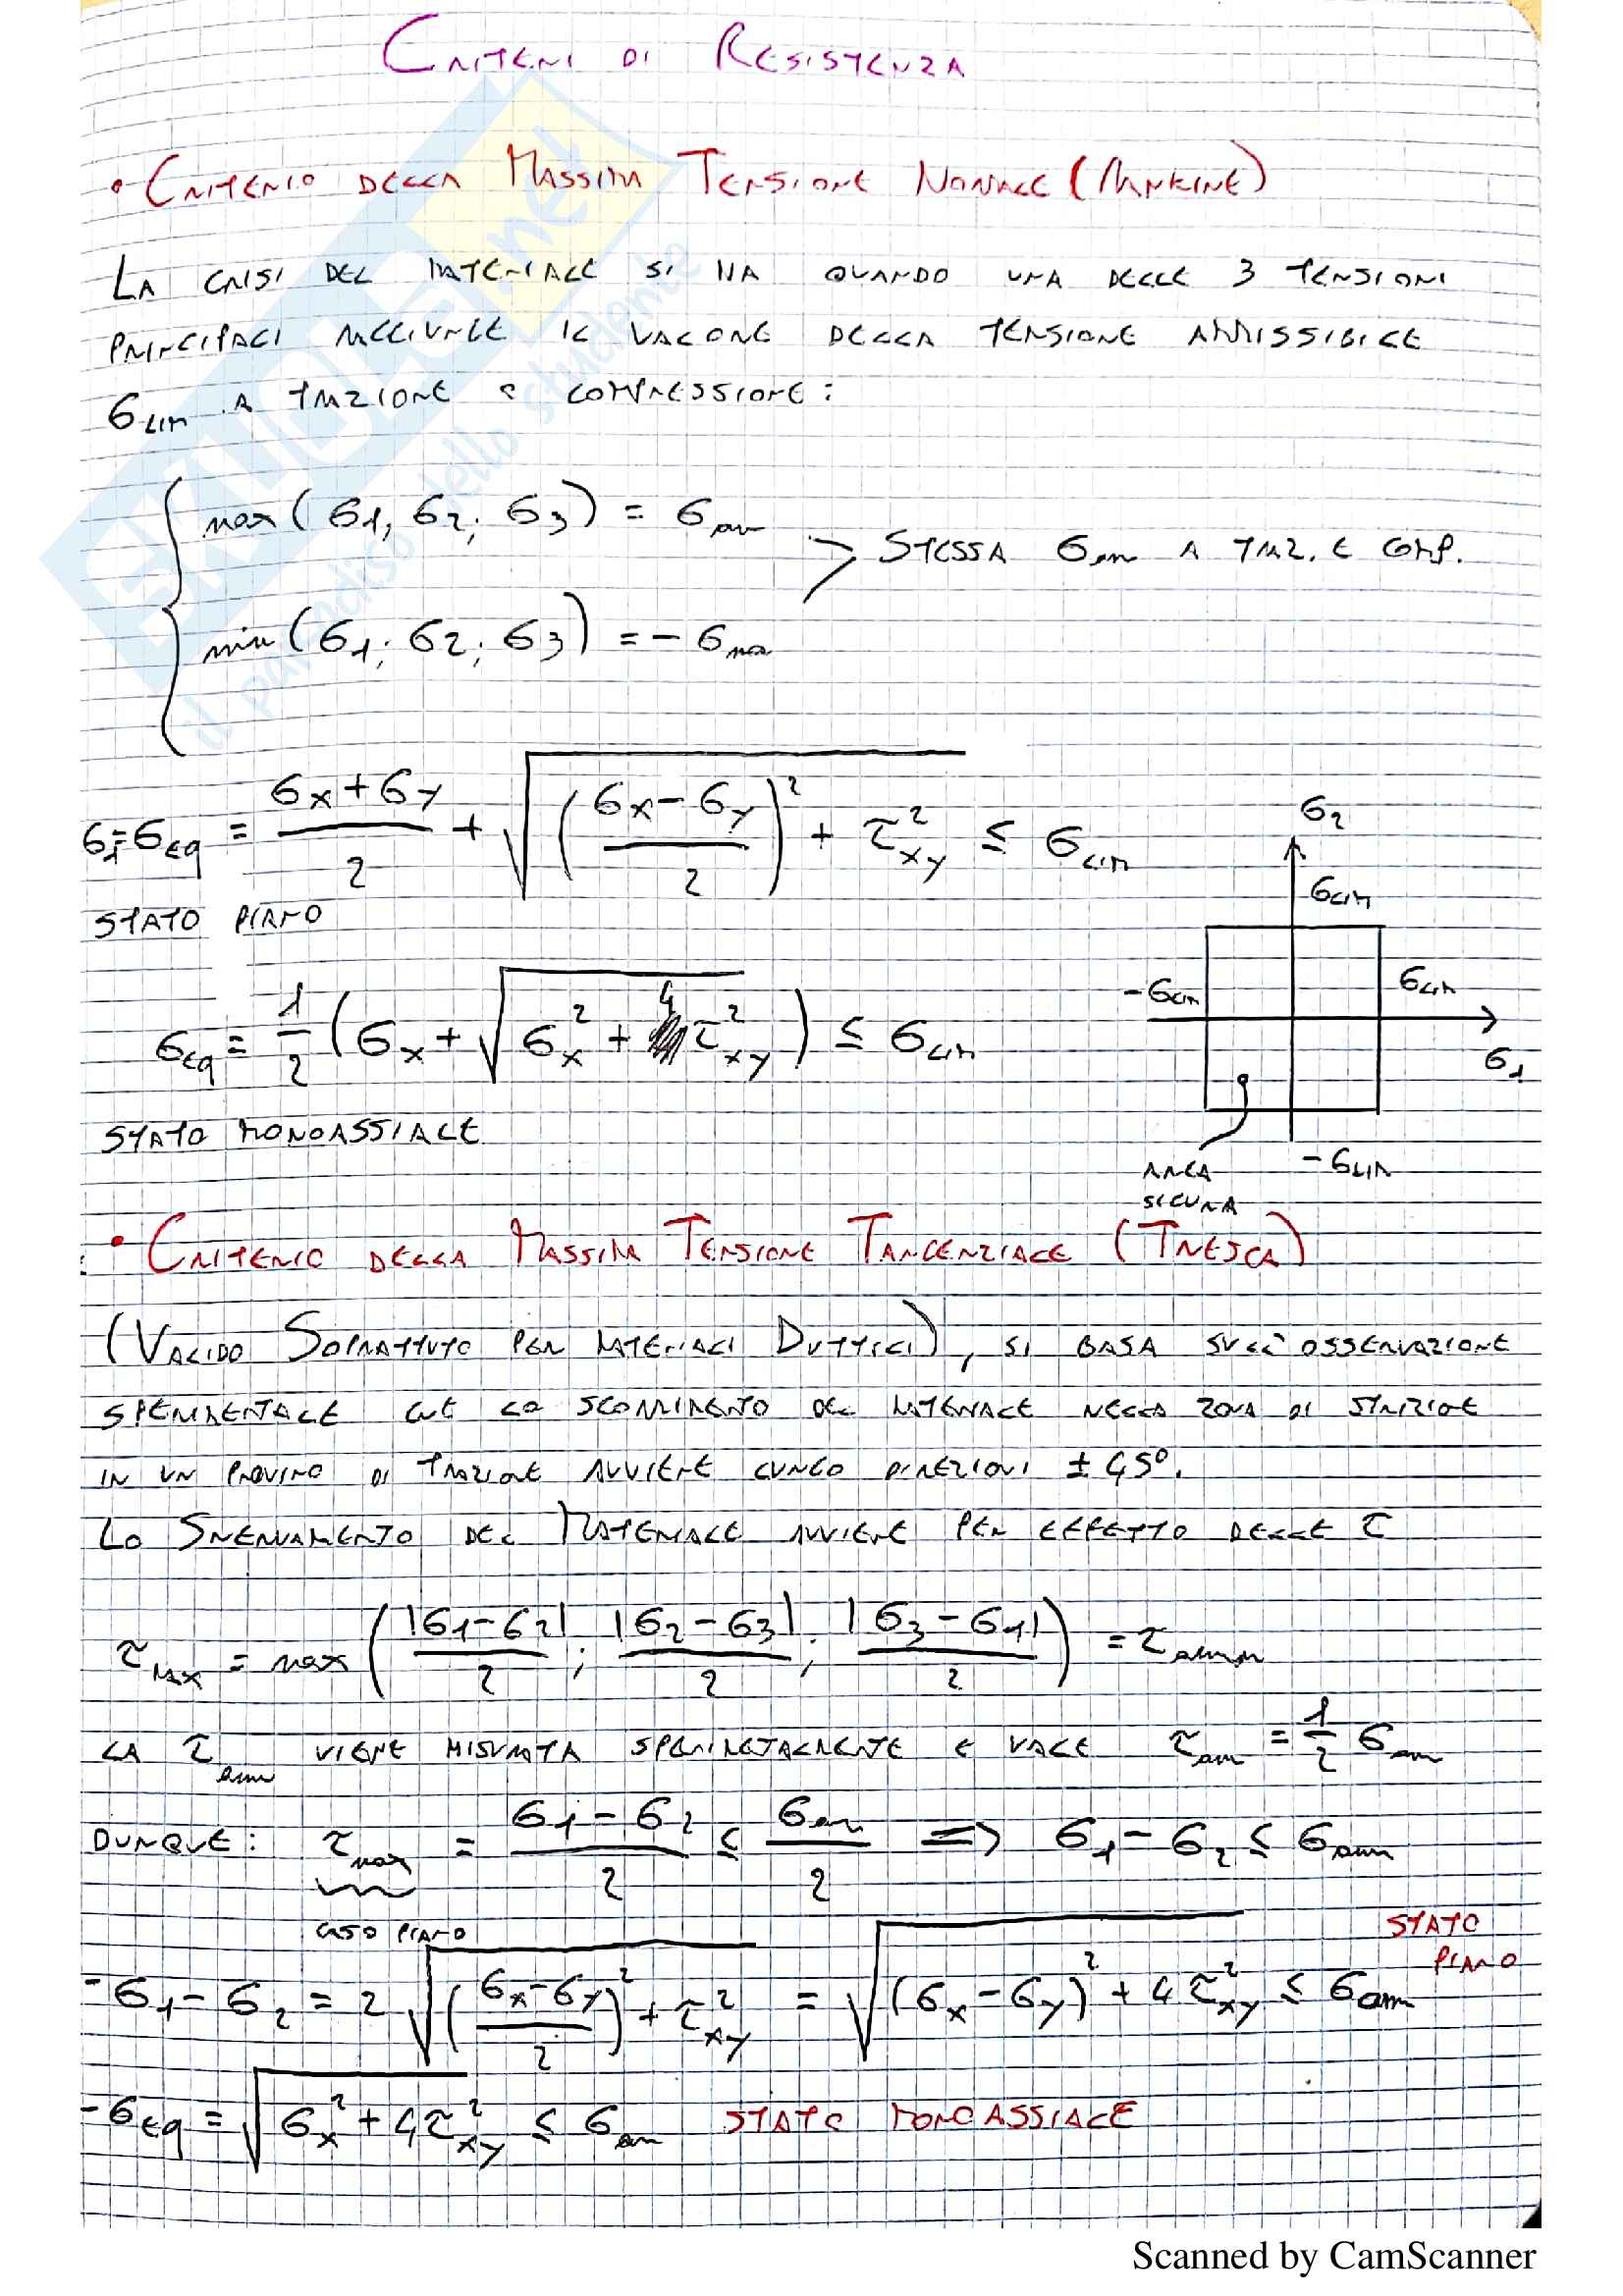 CRITERI DI RESISTENZA
• CRITERIO DELLA MASSIMA TENSIONE NORMALE (RANKINE)
LA CRISI DEL MATERIALE SI HA QUANDO UNA DELLE 3 TENSIONI
PRINCIPALI RAGGIUNGE IL VALORE DELLA TENSIONE AMMISSIBILE
σLIM A TRAZIONE O COMPRESSIONE:
max(σ1, σ2; σ3) = σam
> STESSA σam A TRAZ. E COMP.
min(σ1; σ2; σ3) = - σam
σ1=σEq = (σx+σy)/2 + √(((σx-σy)/2)² + τxy²) ≤ σLIM
STATO PIANO
σEq = 1/2 (σx + √(σx² + 4τxy²)) ≤ σLIM
STATO MONOASSIALE
σ2
σLIM
-σLIM
σLIM
σ1
-σLIM
AREA
SICURA
• CRITERIO DELLA MASSIMA TENSIONE TANGENZIALE (TRESCA)
(VALIDO SOPRATTUTO PER MATERIALI DUTTILI), SI BASA SULL'OSSERVAZIONE
SPERIMENTALE CHE LO SCORRIMENTO DEL MATERIALE NELLA ZONA DI STRIZIONE
IN UN PROVINO DI TRAZIONE AVVIENE LUNGO DIREZIONI ± 45°.
LO SNERVAMENTO DEL MATERIALE AVVIENE PER EFFETTO DELLE τ
τMAX = max(|σ1-σ2|/2; |σ2-σ3|/2; |σ3-σ1|/2) = τamm
LA τamm VIENE MISURATA SPERIMENTALMENTE E VALE τam = 1/2 σam
DUNQUE: τmax = (σ1-σ2)/2 ≤ σam/2 => σ1-σ2 ≤ σamm
CASO PIANO
STATO PIANO
-σ1-σ2 = 2√(((σx-σy)/2)² + τxy²) = √((σx-σy)² + 4τxy²) ≤ σamm
-σEq = √(σx² + 4τxy²) ≤ σam STATO MONOASSIALE
SKUOLA.net
il paradiso dello studente
Scanned by CamScanner